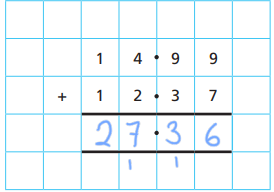 14.99
+ 12.37
27.36
1 1